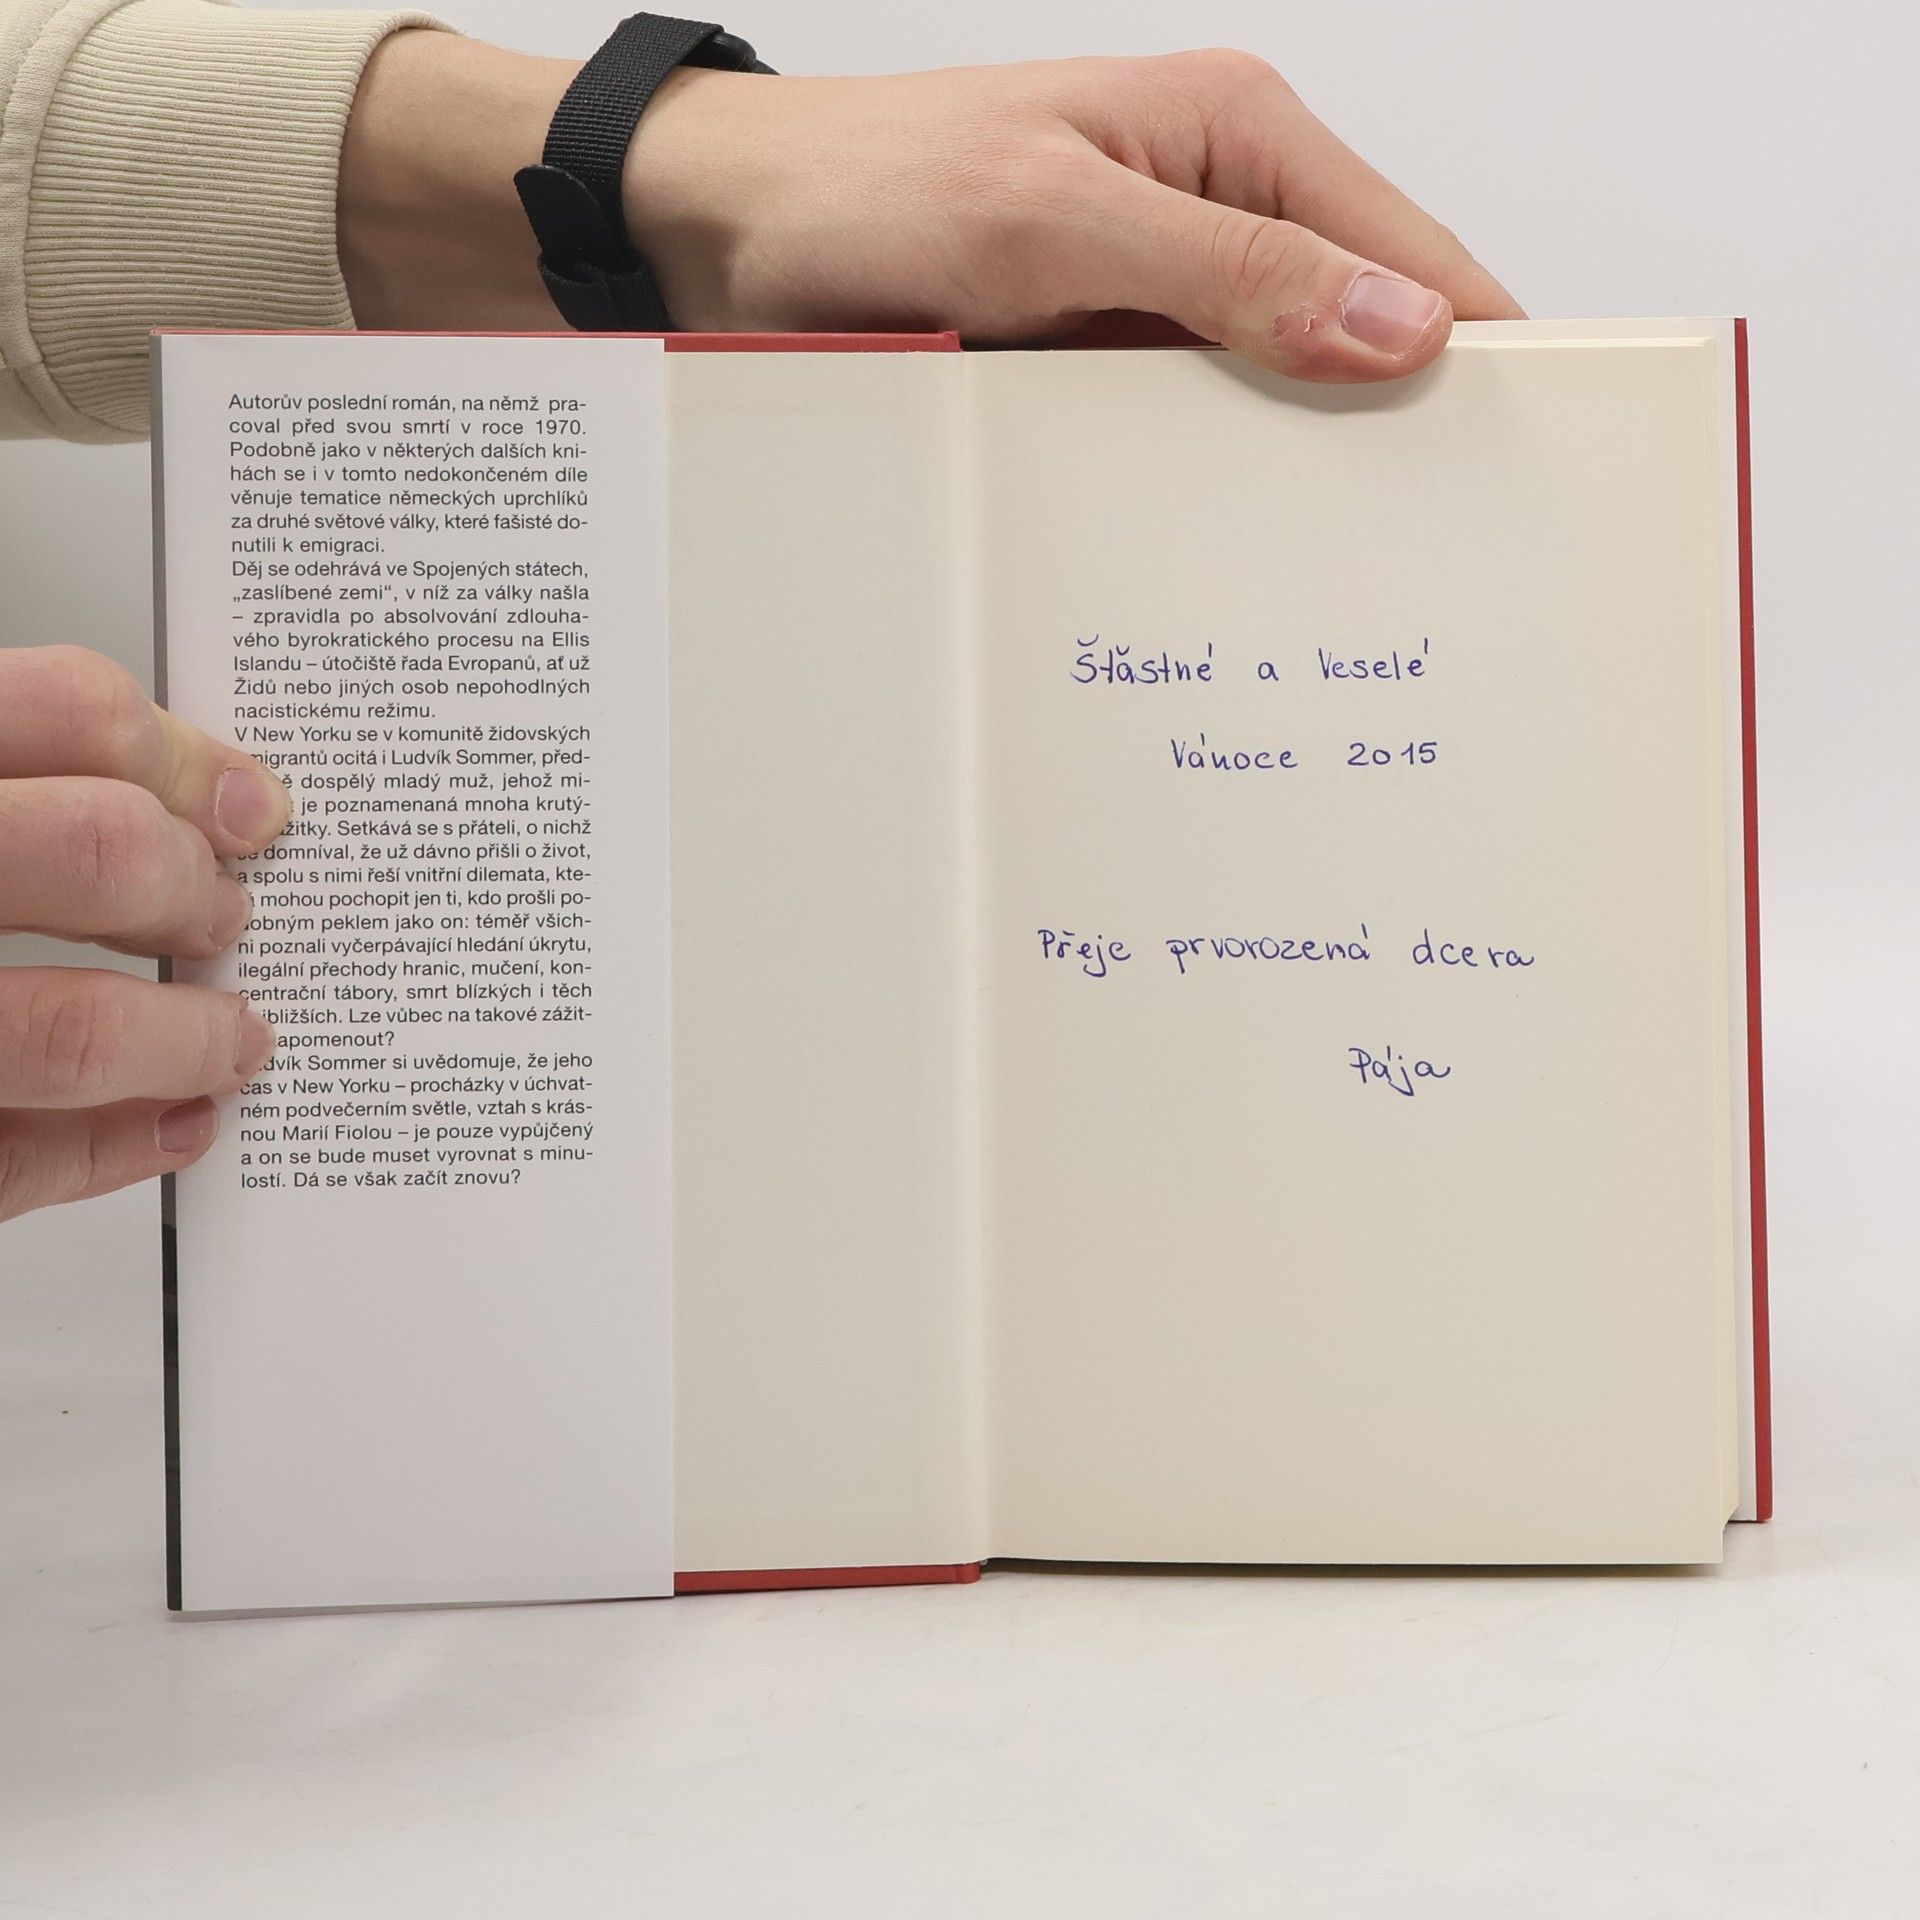 Autorův poslední román, na němž pra-
coval před svou smrtí v roce 1970.
Podobně jako v některých dalších kni-
hách se i v tomto nedokončeném díle
věnuje tematice německých uprchlíků
za druhé světové války, které fašisté do-
nutili k emigraci.
Děj se odehrává ve Spojených státech,
„zaslíbené zemi“, v níž za války našla
– zpravidla po absolvování zdlouha-
vého byrokratického procesu na Ellis
Islandu – útočiště řada Evropanů, ať už
Židů nebo jiných osob nepohodlných
nacistickému režimu.
V New Yorku se v komunitě židovských
migrantů ocitá i Ludvík Sommer, před-
dospělý mladý muž, jehož mi-
je poznamenaná mnoha krutý-
žitky. Setkává se s přáteli, o nichž
se domníval, že už dávno přišli o život,
a spolu s nimi řeší vnitřní dilemata, kte-
mohou pochopit jen ti, kdo prošli po-
dobným peklem jako on: téměř všich-
ni poznali vyčerpávající hledání úkrytu,
ilegální přechody hranic, mučení, kon-
centrační tábory, smrt blízkých i těch
jbližších. Lze vůbec na takové zážit-
apomenout?
dvík Sommer si uvědomuje, že jeho
čas v New Yorku – procházky v úchvat-
ném podvečerním světle, vztah s krás-
nou Marií Fiolou – je pouze vypůjčený
a on se bude muset vyrovnat s minu-
lostí. Dá se však začít znovu?
Šťǎstné a Veselé
Vánoce 2015
Přeje prvorozená dcera
Pája